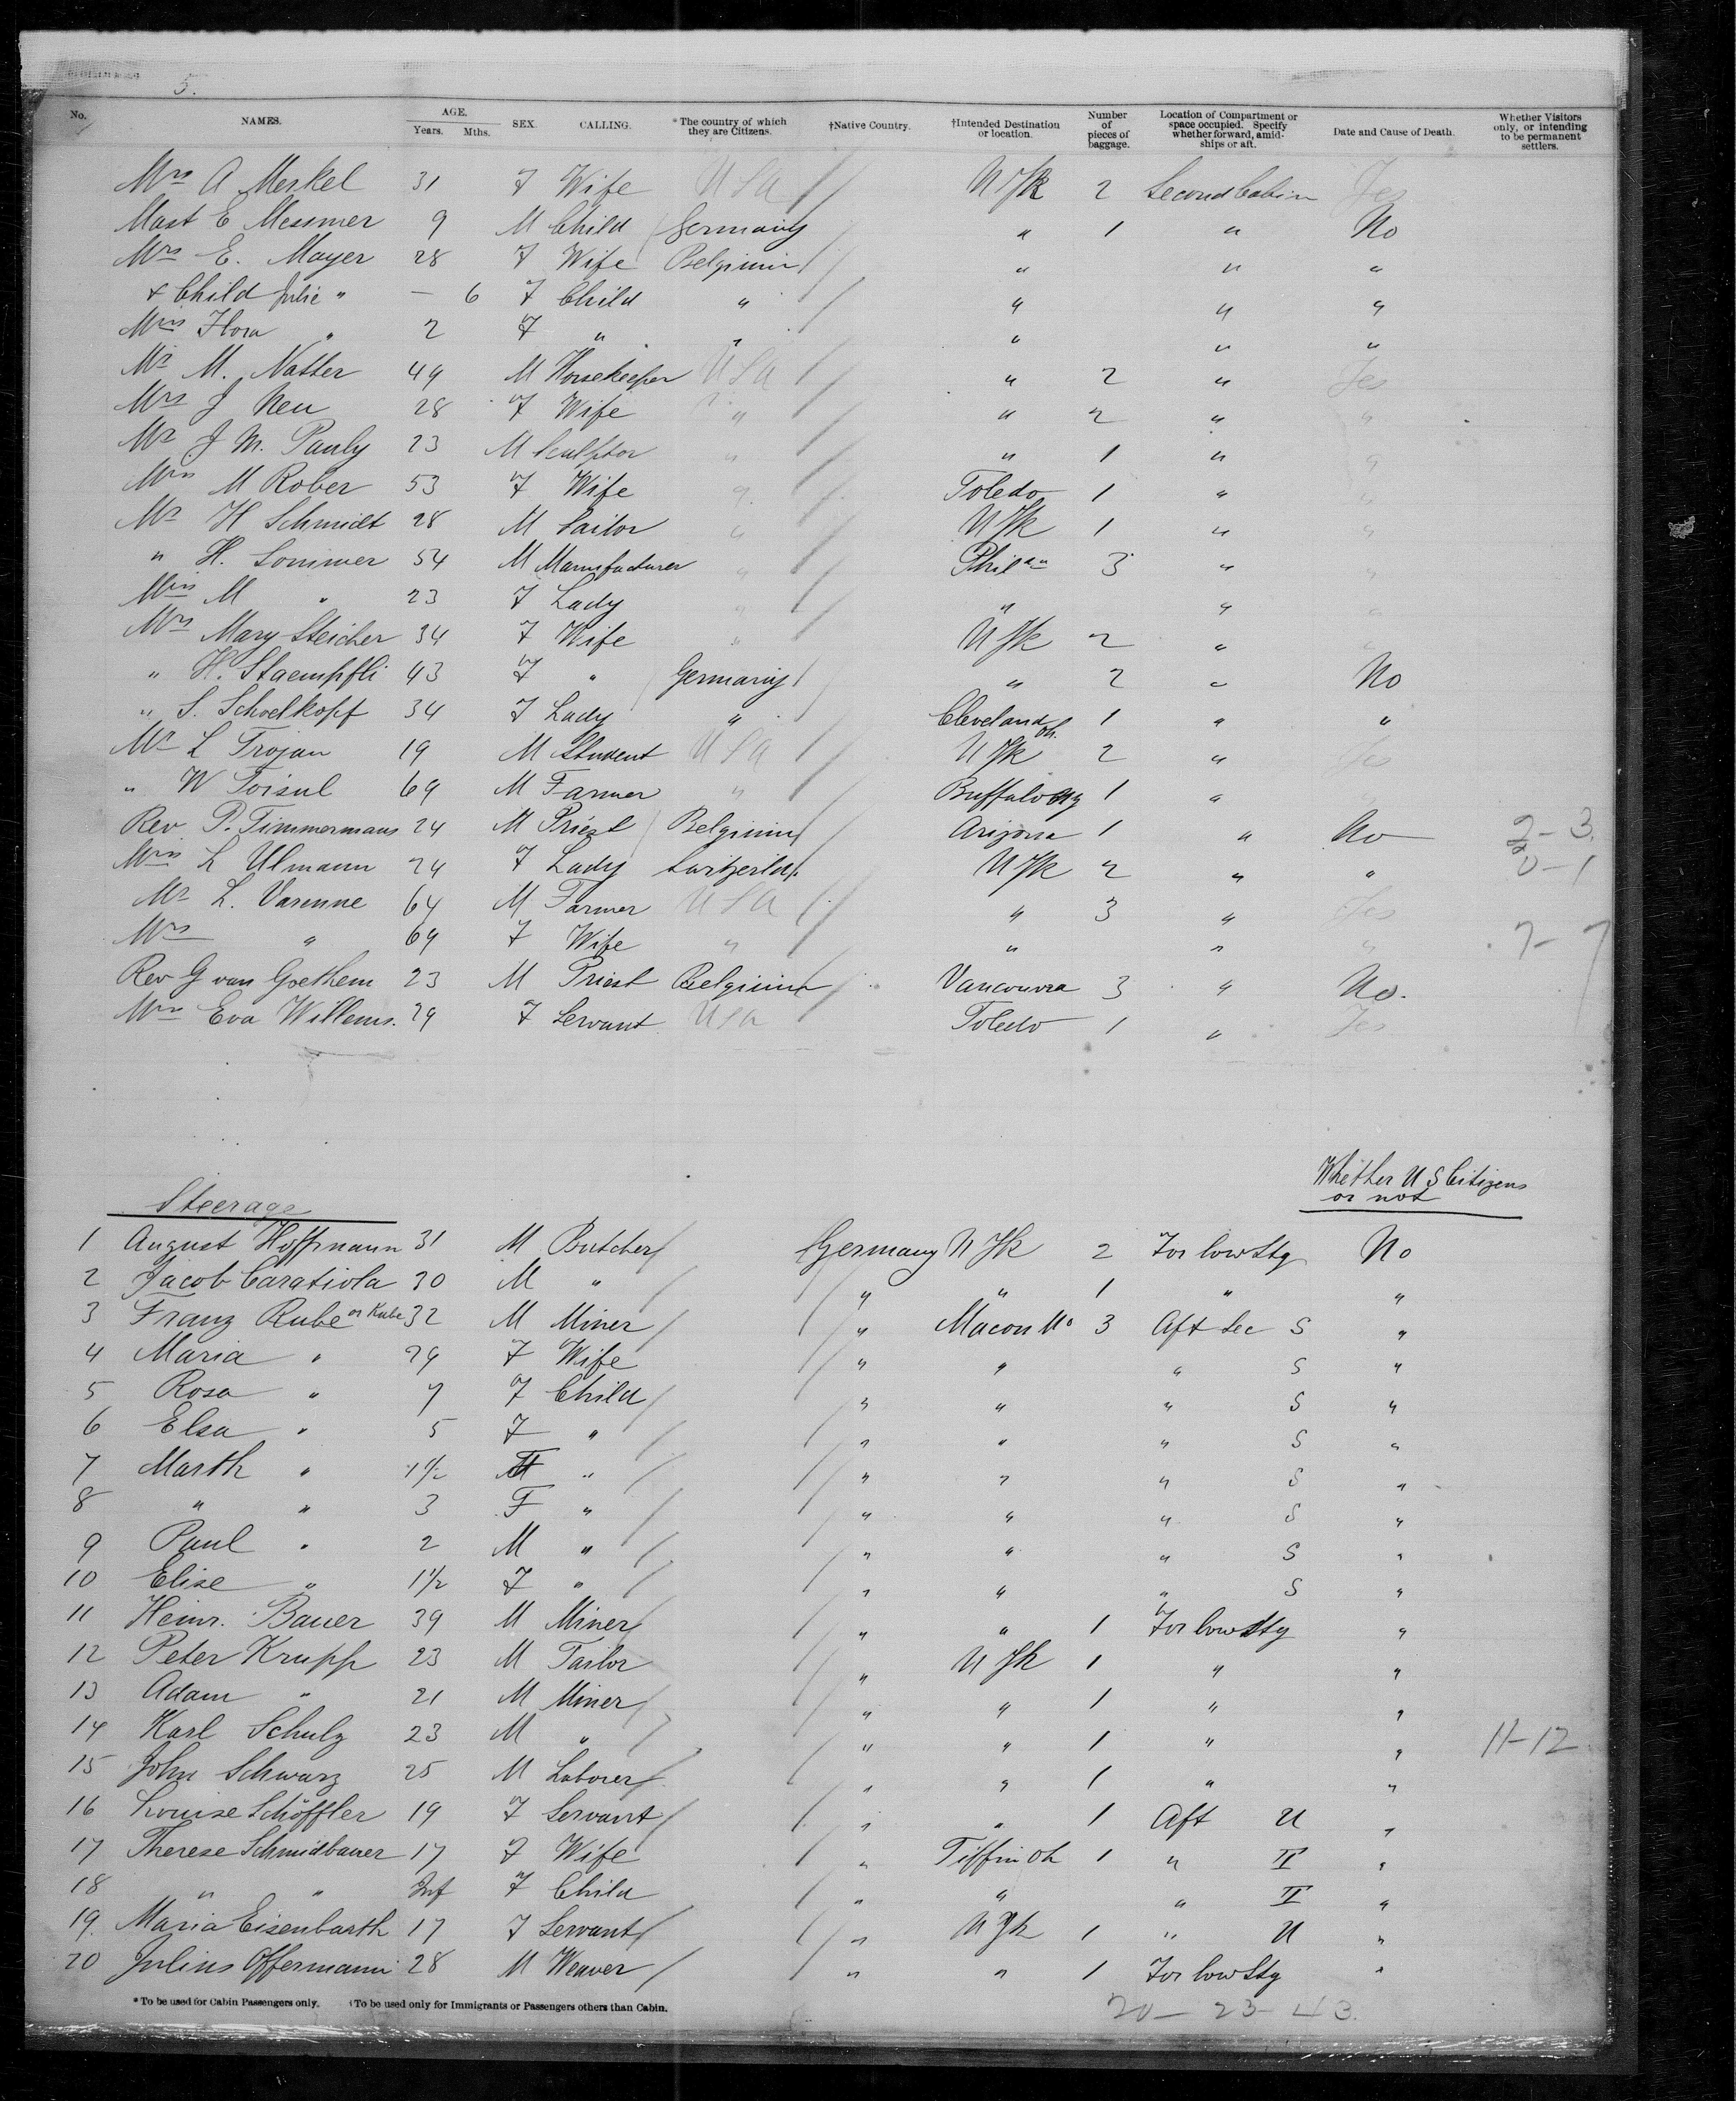 5.
No. NAMES. AGE. Years. Mths. SEX. CALLING. *The country of which they are Citizens. †Native Country. †Intended Destination or location. Number of pieces of baggage. Location of Compartment or space occupied. Specify whether forward, amidships or aft. Date and Cause of Death. Whether Visitors only, or intending to be permanent settlers.
Mrs A Merkel 31 F Wife USA NYk 2 Second Cabin Yes
Mast E Messmer 9 M Child Germany " 1 " No
Mrs E. Mayer 28 F Wife Belgium " " "
& Child Julie " — 6 F Child " " " "
Miss Flora " 2 F " " " " "
Mr M. Natter 49 M Horsekeeper USA " 2 " Yes
Mrs J Neu 28 F Wife " " 2 " "
Mr J M. Pauly 23 M Sculptor " " 1 " "
Mrs M Rober 53 F Wife " Toledo 1 " "
Mr H Schmidt 28 M Sailor " NYk 1 " "
" H. Sommer 54 M Manufacturer " Phila 3 " "
Miss M " 23 F Lady " " " "
Mrs Mary Steicher 34 F Wife " NYk 2 " "
" H. Staempfli 43 F " Germany " 2 " No
" S. Schoelkopf 34 F Lady " Cleveland Oh. 1 " "
Mr L Trojan 19 M Student USA NYk 2 " Yes
" W Toisul 69 M Farmer " Buffalo Ny 1 " "
Rev P. Timmermans 24 M Priest Belgium Arizona 1 " No 2-3
Miss L Ulmann 24 F Lady Switzerld NYk 2 " " 0-1
Mr L. Varenne 64 M Farmer USA " 3 " Yes
Mrs " 69 F Wife " " " " 7-7
Rev G van Goethem 23 M Priest Belgium Vancouver 3 " No.
Mrs Eva Willems. 29 F Servant USA Toledo 1 " Yes
Whether U S Citizens or not
Steerage
1 August Hoffmann 31 M Butcher Germany NYk 2 For low Stg No
2 Jacob Caratiola 30 M " " " 1 " "
3 Franz Rube or Kube 32 M Miner " Macon Mo 3 Aft Sec S "
4 Maria " 29 F Wife " " " S "
5 Rosa " 7 F Child " " " S "
6 Elsa " 5 F " " " " S "
7 Marth " 1 1/2 " " " " S "
8 " " 3 F " " " " S "
9 Paul " 2 M " " " " S "
10 Elise " 1 1/2 F " " " " S "
11 Heinr. Bauer 39 M Miner " " 1 For low Stg "
12 Peter Krupp 23 M Tailor " NYk 1 " "
13 Adam " 21 M Miner " " 1 " "
14 Karl Schulz 23 M " " " 1 " " 11-12
15 John Schwarz 25 M Laborer " " 1 " "
16 Louise Schöffler 19 F Servant " " 1 Aft U "
17 Therese Schmidbauer 17 F Wife " Tiffin Oh 1 " II "
18 " " Inf F Child " " " II "
19. Maria Eisenbarth 17 F Servant " NYk 1 " U "
20 Julius Offermann 28 M Weaver " " 1 For low Stg "
*To be used for Cabin Passengers only. †To be used only for Immigrants or Passengers others than Cabin.
20 - 23 - 43.